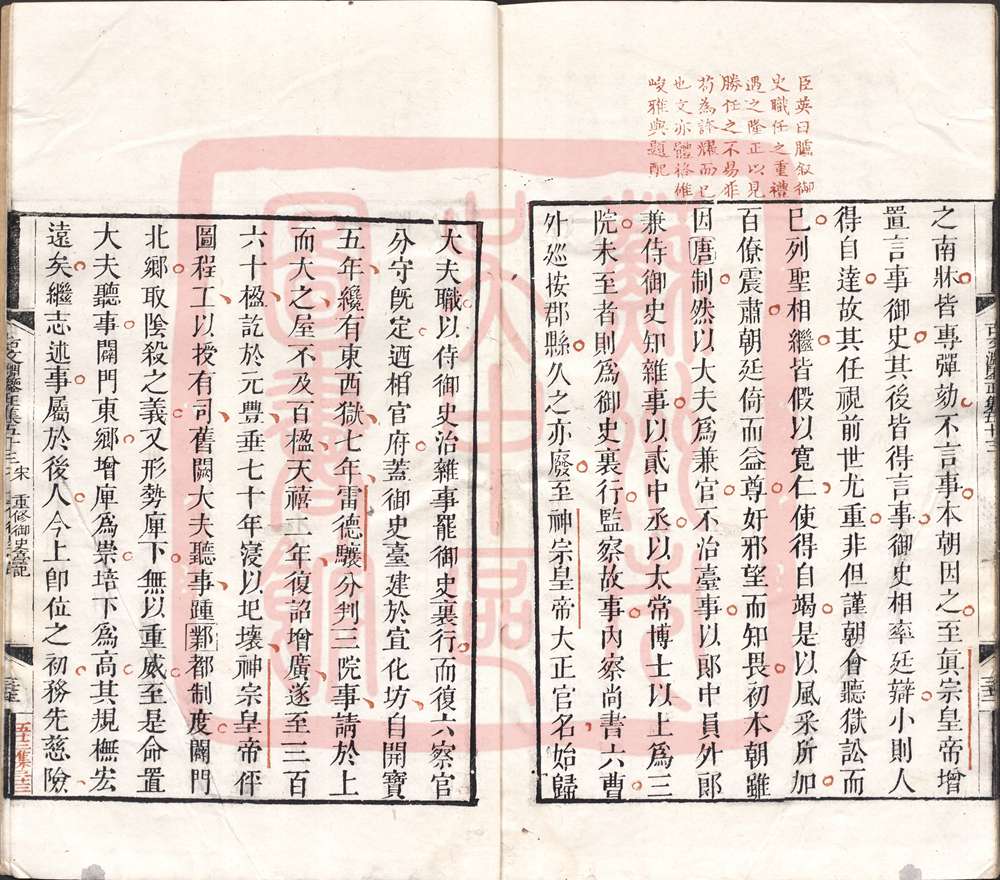 臣英曰臚叙御
史職任之重禮
遇之隆正以見
勝任之不易非
苟為誇耀而已
也文亦體格雄
峻雅與題配
之南牀皆專彈劾不言事本朝因之至眞宗皇帝增
置言事御史其後皆得言事御史相率廷辯小則人
得自達故其任視前世尤重非但謹朝會聽獄訟而
已列聖相繼皆假以寬仁使得自竭是以風采所加
百僚震肅朝廷倚而益尊奸邪望而知畏初本朝雖
因唐制然以大夫爲兼官不治臺事以郞中員外郞
兼侍御史知雜事以貳中丞以太常博士以上爲三
院未至者則爲御史裏行監察故事內察尚書六曹
外廵按郡縣久之亦廢至神宗皇帝大正官名始歸
大夫職以侍御史治雜事罷御史裏行而復六察官
分守旣定迺相官府蓋御史臺建於宣化坊自開寶
五年纔有東西獄七年雷德驤分判三院事請於上
而大之屋不及百楹天禧二年復詔增廣遂至三百
六十楹訖於元豐垂七十年寖以圮壞神宗皇帝伻
圖程工以授有司舊闕大夫聽事踵鄴都制度闢門
北鄕取陰殺之義又形勢庳下無以重威至是命置
大夫聽事闢門東鄕增庳爲崇培下爲高其規橅宏
遠矣繼志述事屬於後人今上卽位之初務先慈險
宋 重修御史臺記
五十三集三十三